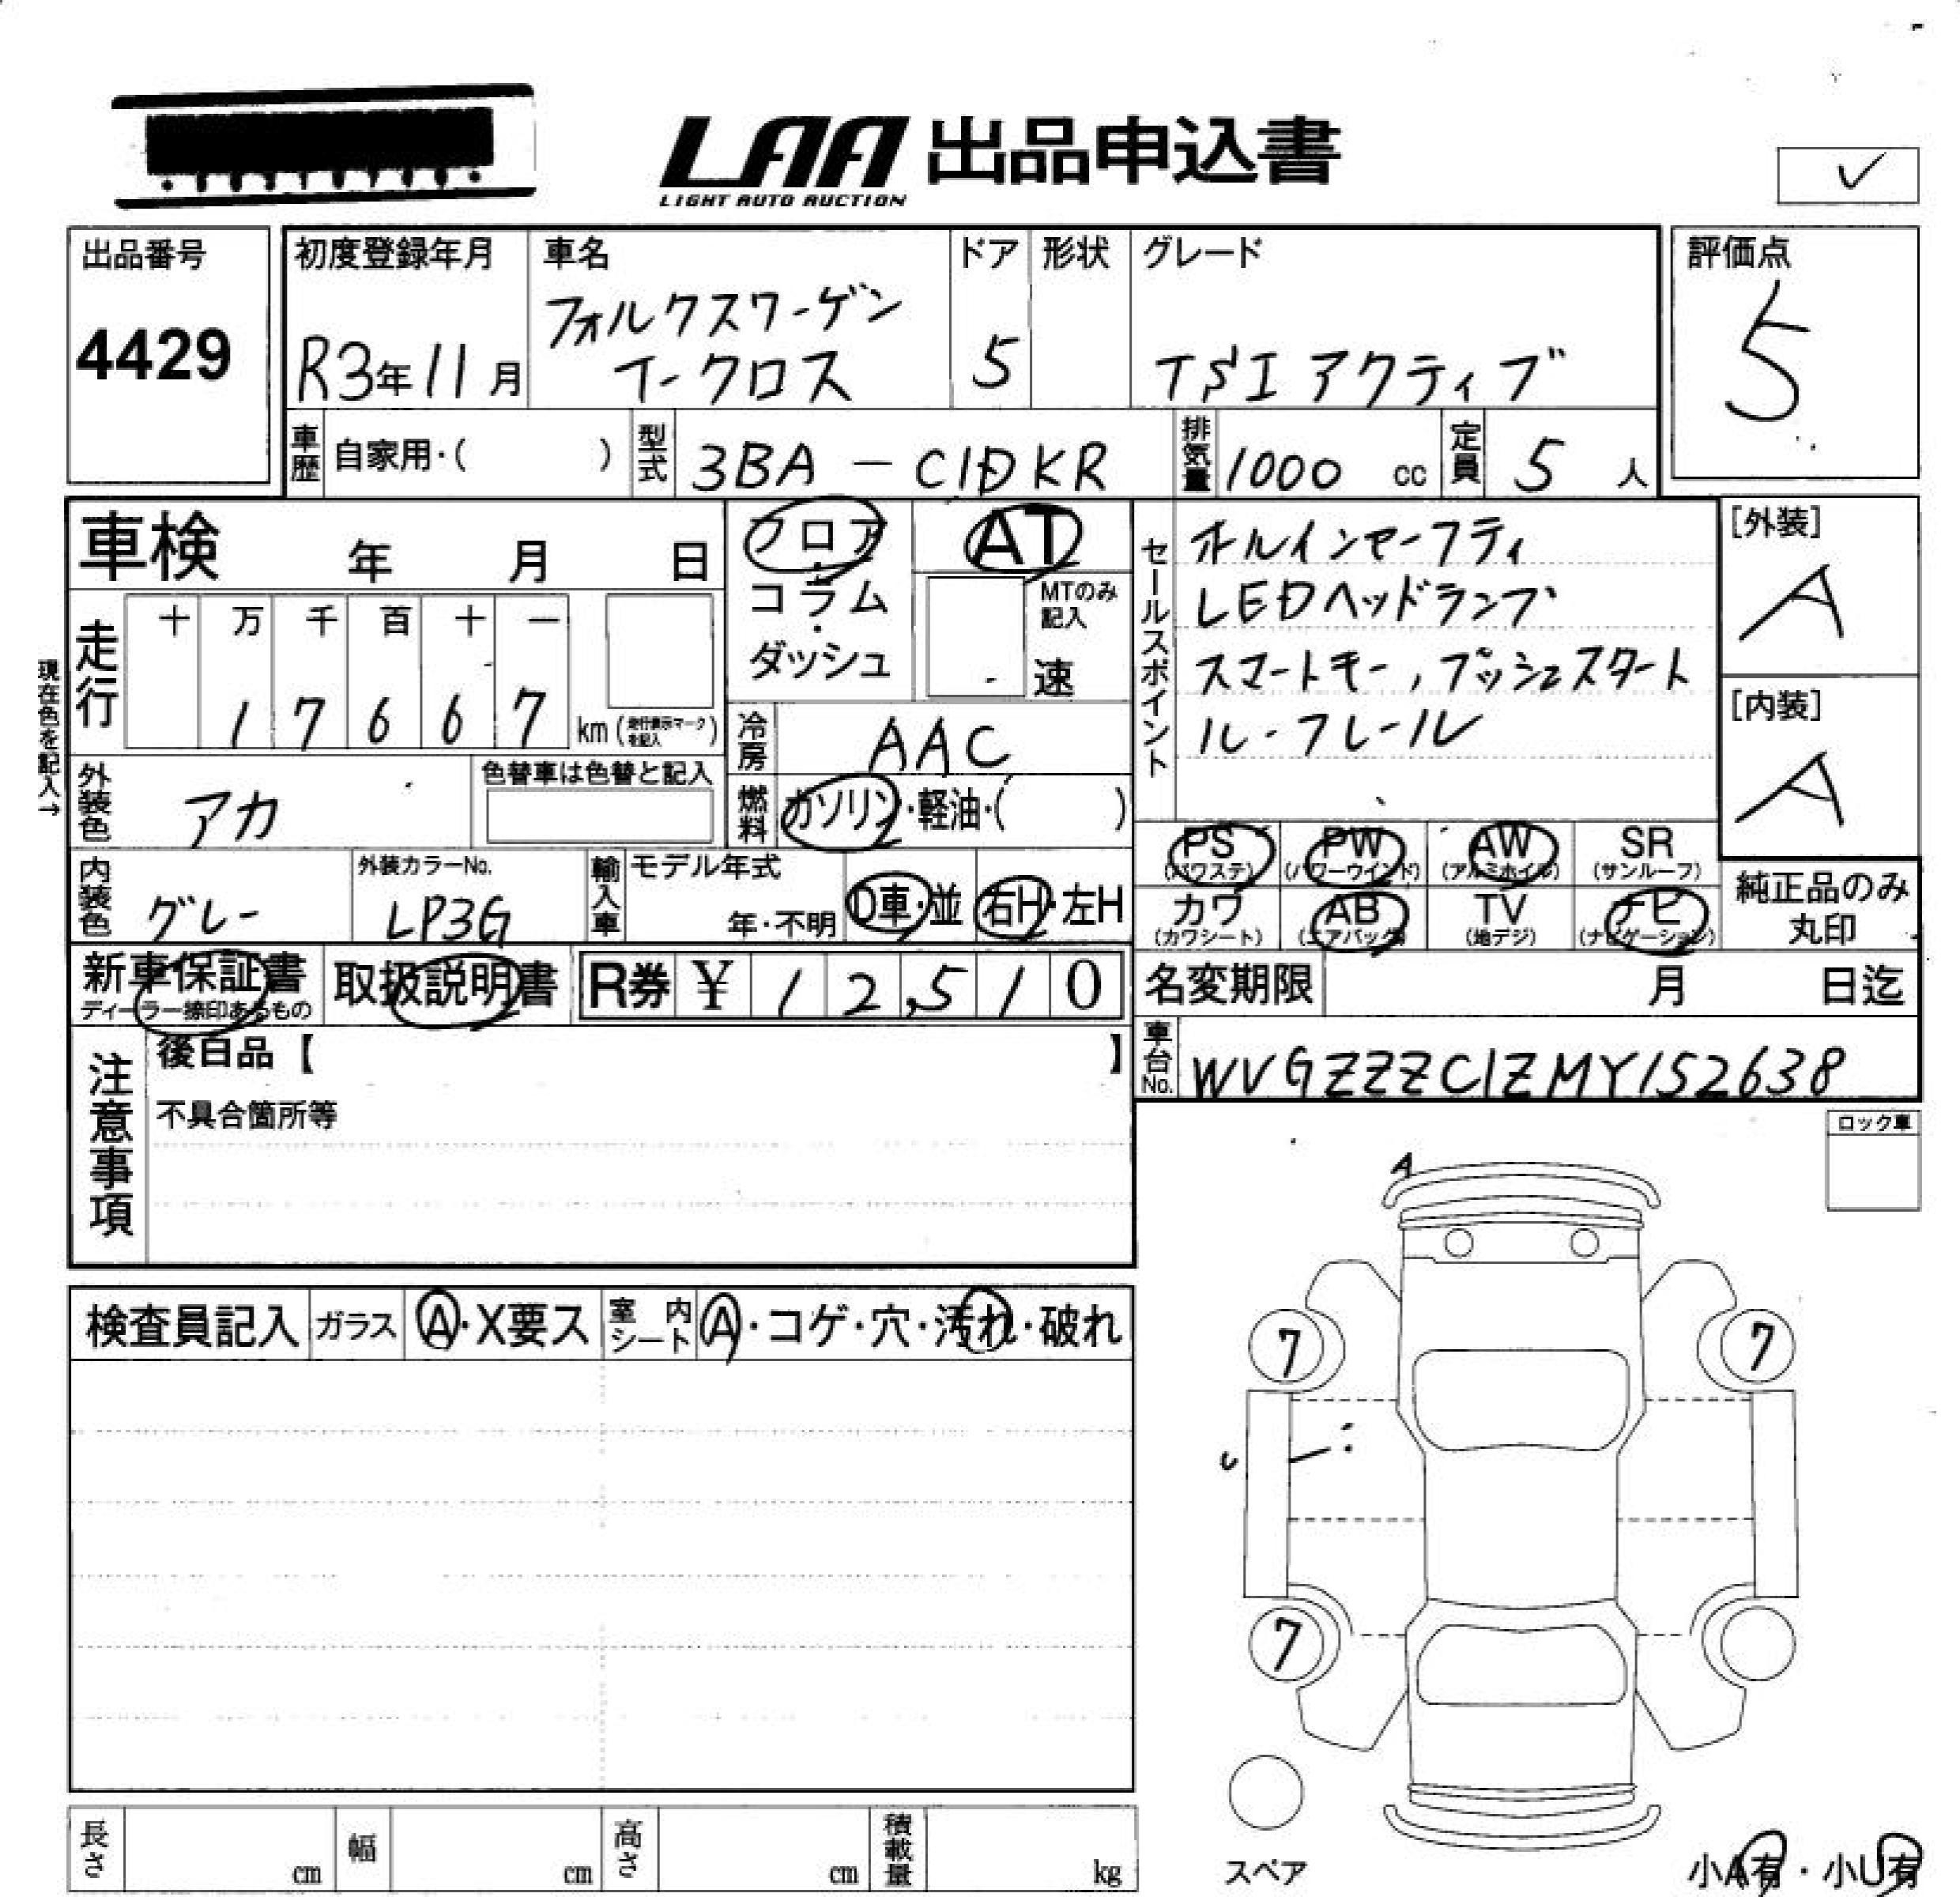 LAA 出品申込書
LIGHT AUTO AUCTION
✓
出品番号
4429
初度登録年月
R3年11月
車名
フォルクスワーゲン
T-クロス
ドア
5
形状
グレード
TSI アクティブ
評価点
5
車歴 自家用・( )
型式 3BA - C1DKR
排気量 1000 cc
定員 5 人
車検 年 月 日
フロア・コラム・ダッシュ
AT
MTのみ記入
速
セールスポイント
オールインセーフティ
LEDヘッドランプ
スマートキー, プッシュスタート
ルーフレール
[外装]
A
[内装]
A
現在色を記入→
走行
十 万 千 百 十 一
1 7 6 6 7 km (走行表示マークを記入)
冷房 AAC
外装色 アカ
色替車は色替と記入
燃料 ガソリン・軽油・( )
PS (パワステ)
PW (パワーウインド)
AW (アルミホイル)
SR (サンルーフ)
カワ (カワシート)
AB (エアバッグ)
TV (地デジ)
ナビ (ナビゲーション)
純正品のみ
丸印
内装色 グレー
外装カラーNo.
LP3G
輸入車
モデル年式
年・不明
D車・並
右H・左H
新車保証書
取扱説明書
R券 ¥ 12,510
名変期限 月 日迄
車台No. WVGZZZC1ZMY152638
注意事項
後日品【 】
不具合箇所等
ロック車
A
検査員記入
ガラス A・X要ス
室内シート A・コゲ・穴・汚れ・破れ
7
7
7
スペア
長さ cm
幅 cm
高さ cm
積載量 kg
小A有・小U有